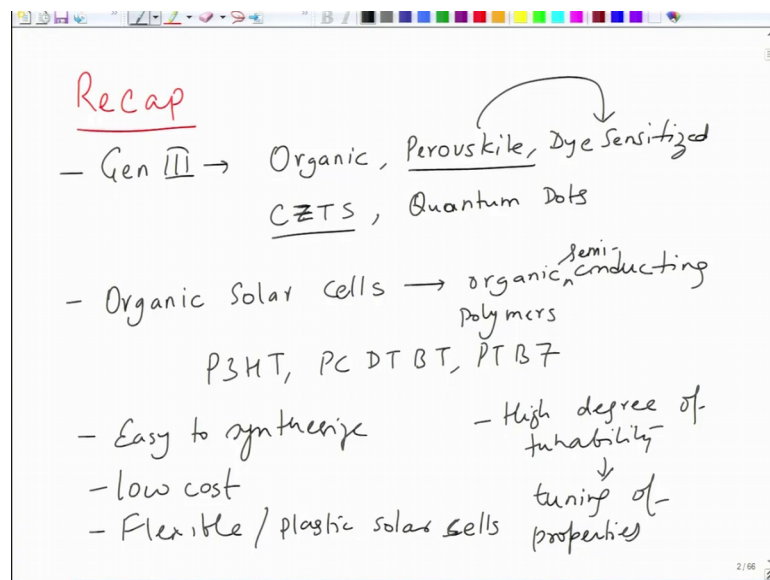 Recap
- Gen III → Organic, Perouskite, Dye Sensitized
CZTS, Quantum Dots
- Organic Solar Cells → organic semi-conducting
polymers
P3HT, PCDTBT, PTB7
- Easy to synthesize
- low cost
- Flexible / plastic solar cells
- High degree of
tunability
↓
tuning of
properties
2 / 66